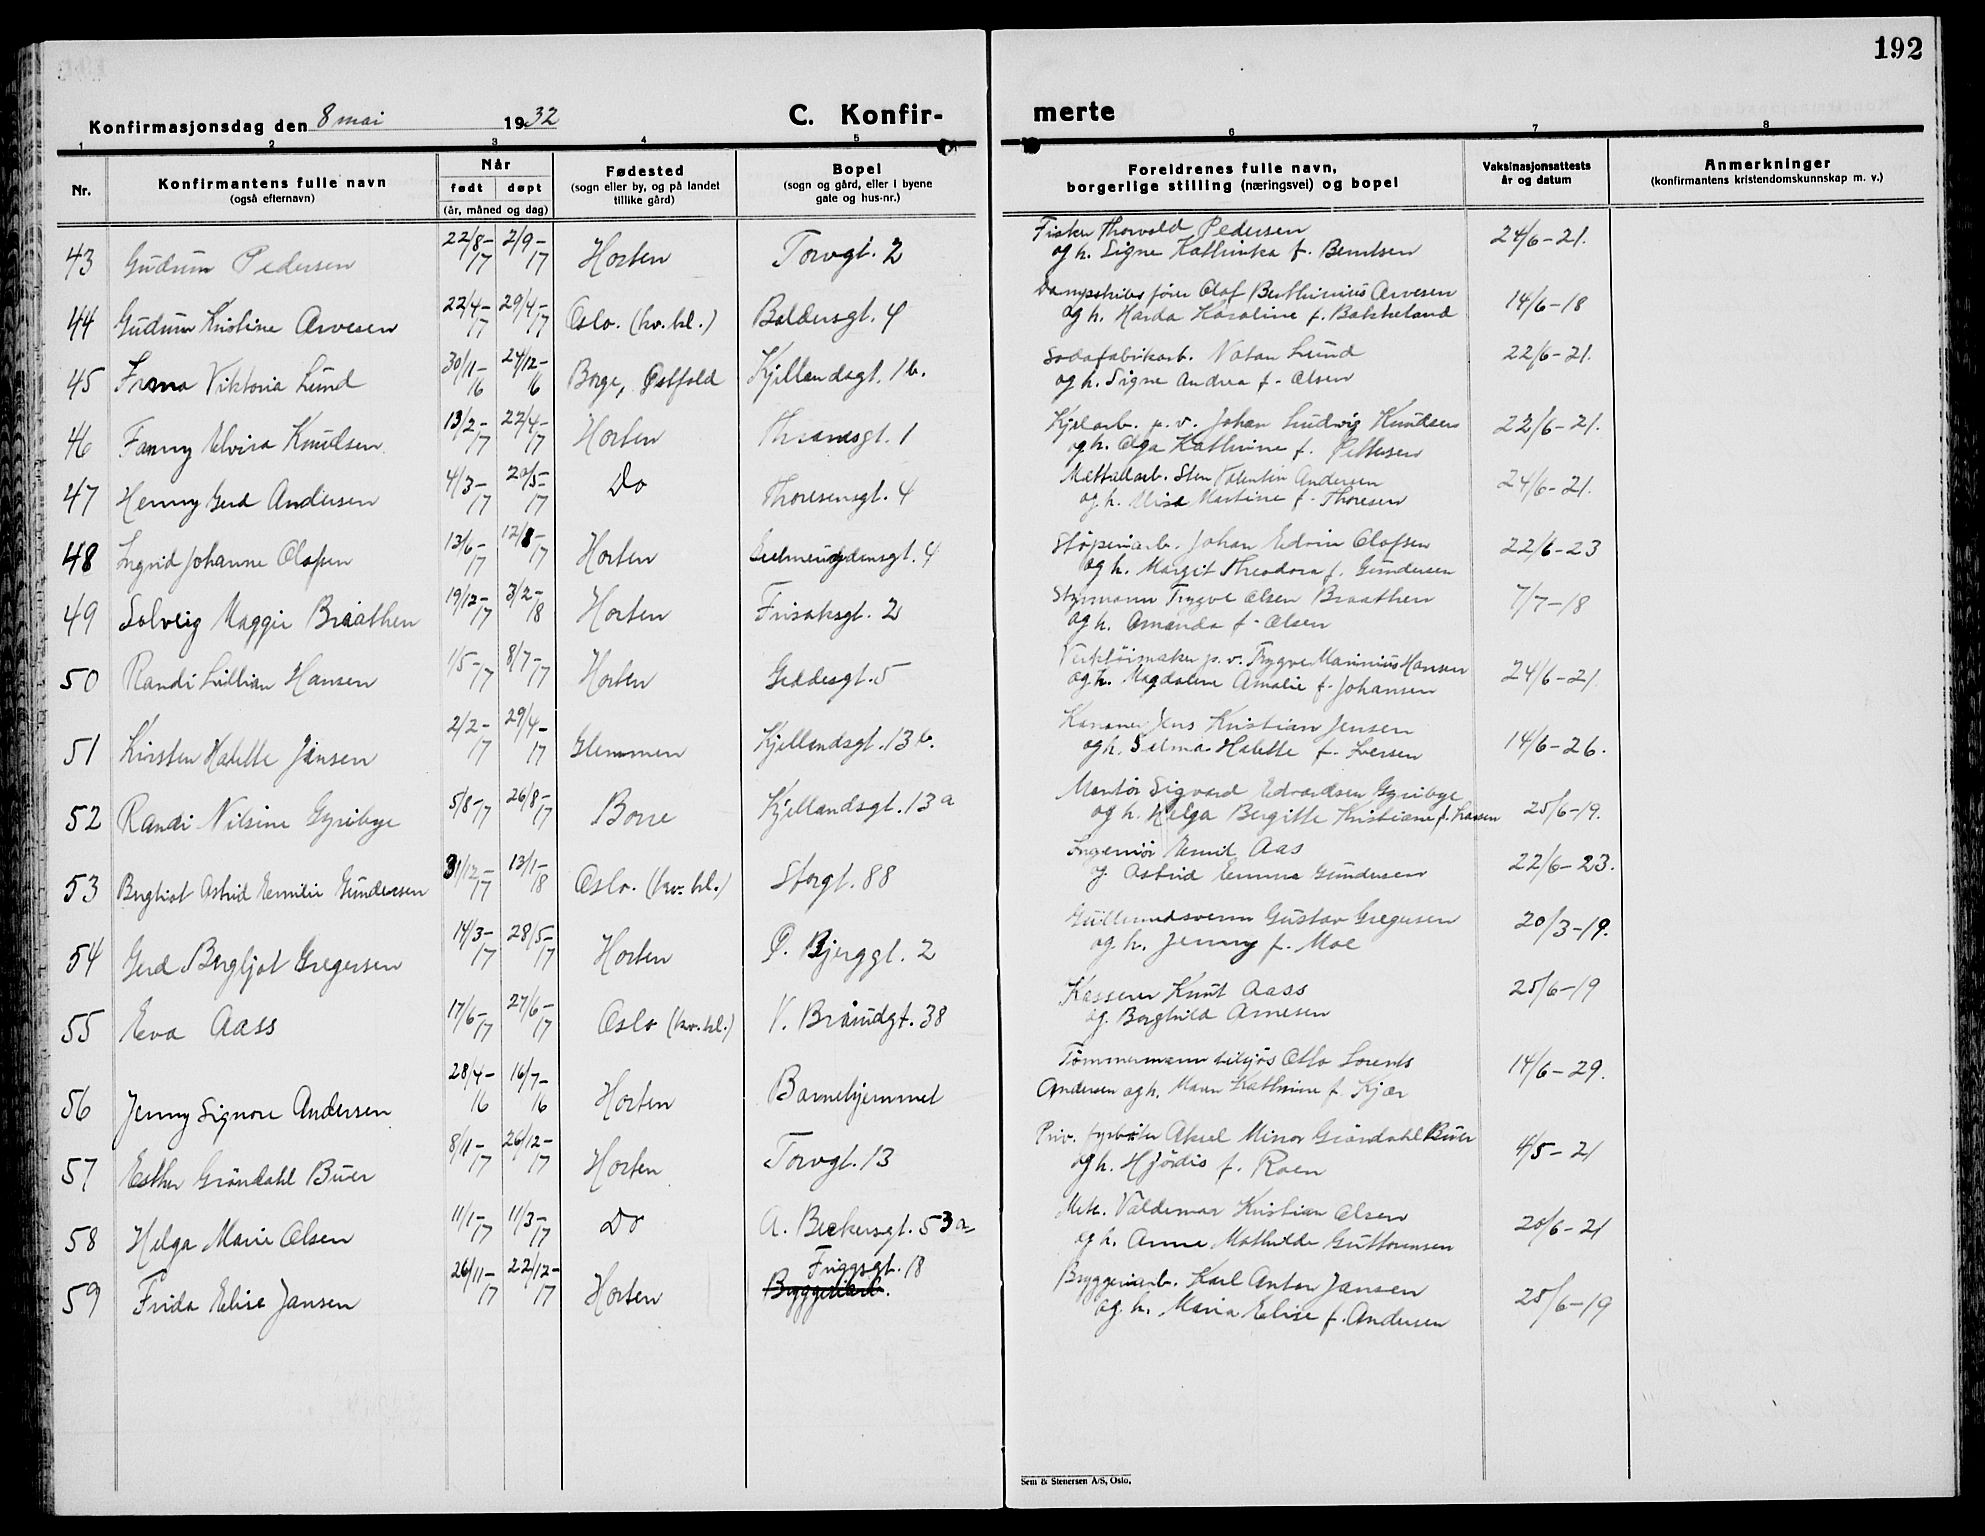 192
Konfirmasjonsdag den 8 mai 1932 C. Konfir-
merte
1 2 3 4 5 6 7 8
Nr.
Konfirmantens fulle navn
(også efternavn)
Når
født døpt
(år, måned og dag)
Fødested
(sogn eller by, og på landet
tillike gård)
Bopel
(sogn og gård, eller i byene
gate og hus-nr.)
Foreldrenes fulle navn,
borgerlige stilling (næringsvei) og bopel
Vaksinasjonsattests
år og datum
Anmerkninger
(konfirmantens kristendomskunnskap m. v.)
43 Gudrun Pedersen 22/8-17 2/9-17 Horten Torvgt. 2
Fisker Thorvald Pedersen
og h. Signe Kathinka f. Berntsen 24/6-21.
44 Gudrun Kristine Arvesen 22/4-17 29/4-17 Oslo. (kv. kl.) Baldersgt. 4
Dampskibsfører Olof Berthinius Arvesen
og h. Harda Karoline f. Bakkeland 14/6-18
45 Irma Viktoria Lund 30/11-16 24/12-16 Borge, Østfold Kjellandsgt. 1 b.
Sodafabrikarb. Natan Lund
og h. Signe Andrea f. Olsen 22/6-21.
46 Fanny Elvira Knudsen 13/2-17 22/4-17 Horten Thranesgt. 1
Kjelarb. p. v. Johan Ludvig Knudsen
og h. Olga Kathrine f. Pettersen 22/6-21.
47 Henny Gerd Andersen 4/3-17 20/5-17 Do Thoresensgt. 4
Mettallarb. Sten Valentin Andersen
og h. Elise Martine f. Thoresen 24/6-21.
48 Ingrid Johanne Olofsen 13/6-17 12/8-17 Horten 4
Støperiarb. Johan Edvin Olofsen
og h. Margit Theodora f. Gundersen 22/6-23
49 Solveig Maggie Braathen 19/12-17 3/2-18 Horten Frisaksgt. 2
Styrmann Trygve Olsen Braathen
og h. Amanda f. Olsen 7/7-18
50 Randi Lillian Hansen 1/5-17 8/7-17 Horten Geddesgt. 5
Verktøimaker p. v. Trygve Marinius Hansen
og h. Magdalene Amalie f. Johansen 24/6-21
51 Kirsten Halette Jensen 2/2-17 29/4-17 Glemmen Kjellandsgt. 13 b.
Kanoner Jens Kristian Jensen
og h. Selma Halette f. Iversen 14/6-26.
52 Randi Nilsine Gyribye 5/8-17 26/8-17 Borre Kjellandsgt. 13 a
Montør Sigvard Edvardsen Gyribye
og h. Helga Bergitte Kristiane f. Larsen 25/6-19.
53 Bergliot Astrid Emilie Gundersen 31/12-17 13/1-18 Oslo. (kv. kl.) Storgt. 88
Ingeniør Emil Aas
og Astrid Emma Gundersen 22/6-23.
54 Gerd Bergljot Gregersen 14/3-17 28/5-17 Horten P. Bjerggt. 2
Gullsmedsvenn Gustav Gregersen
og h. Jenny f. Moe 20/3-19.
55 Eva Aass 17/6-17 27/6-17 Oslo (kv. kl.) V. Braudgt. 38
Kasserer Knut Aass
og Borghild Arnesen 25/6-19
56 Jenny Signore Andersen 28/4-16 16/7-16 Horten Barnehjemmet
Tømmermann tilsjøs Otto Lorents
Andersen og h. Maren Kathrine f. Kjær 14/6-29.
57 Esther Grøndahl Buer 8/11-17 26/12-17 Horten Torvgt. 13
Priv. fyrbøter Aksel Minor Grøndahl Buer
og h. Hjørdis f. Roen 4/5-21
58 Helga Marie Olsen 11/1-17 11/3-17 Do A. Beckersgt. 53 a
Mek. Valdemar Kristian Olsen
og h. Anne Mathilde Guttormsen 20/6-21
59 Frida Elise Jansen 26/11-17 22/12-17 Horten Friggsgt. 18
Bryggeriarb.
Bryggeriarb. Karl Anton Jansen
og h. Maria Elise f. Andersen 25/6-19
Sem & Stenersen A/S, Oslo.